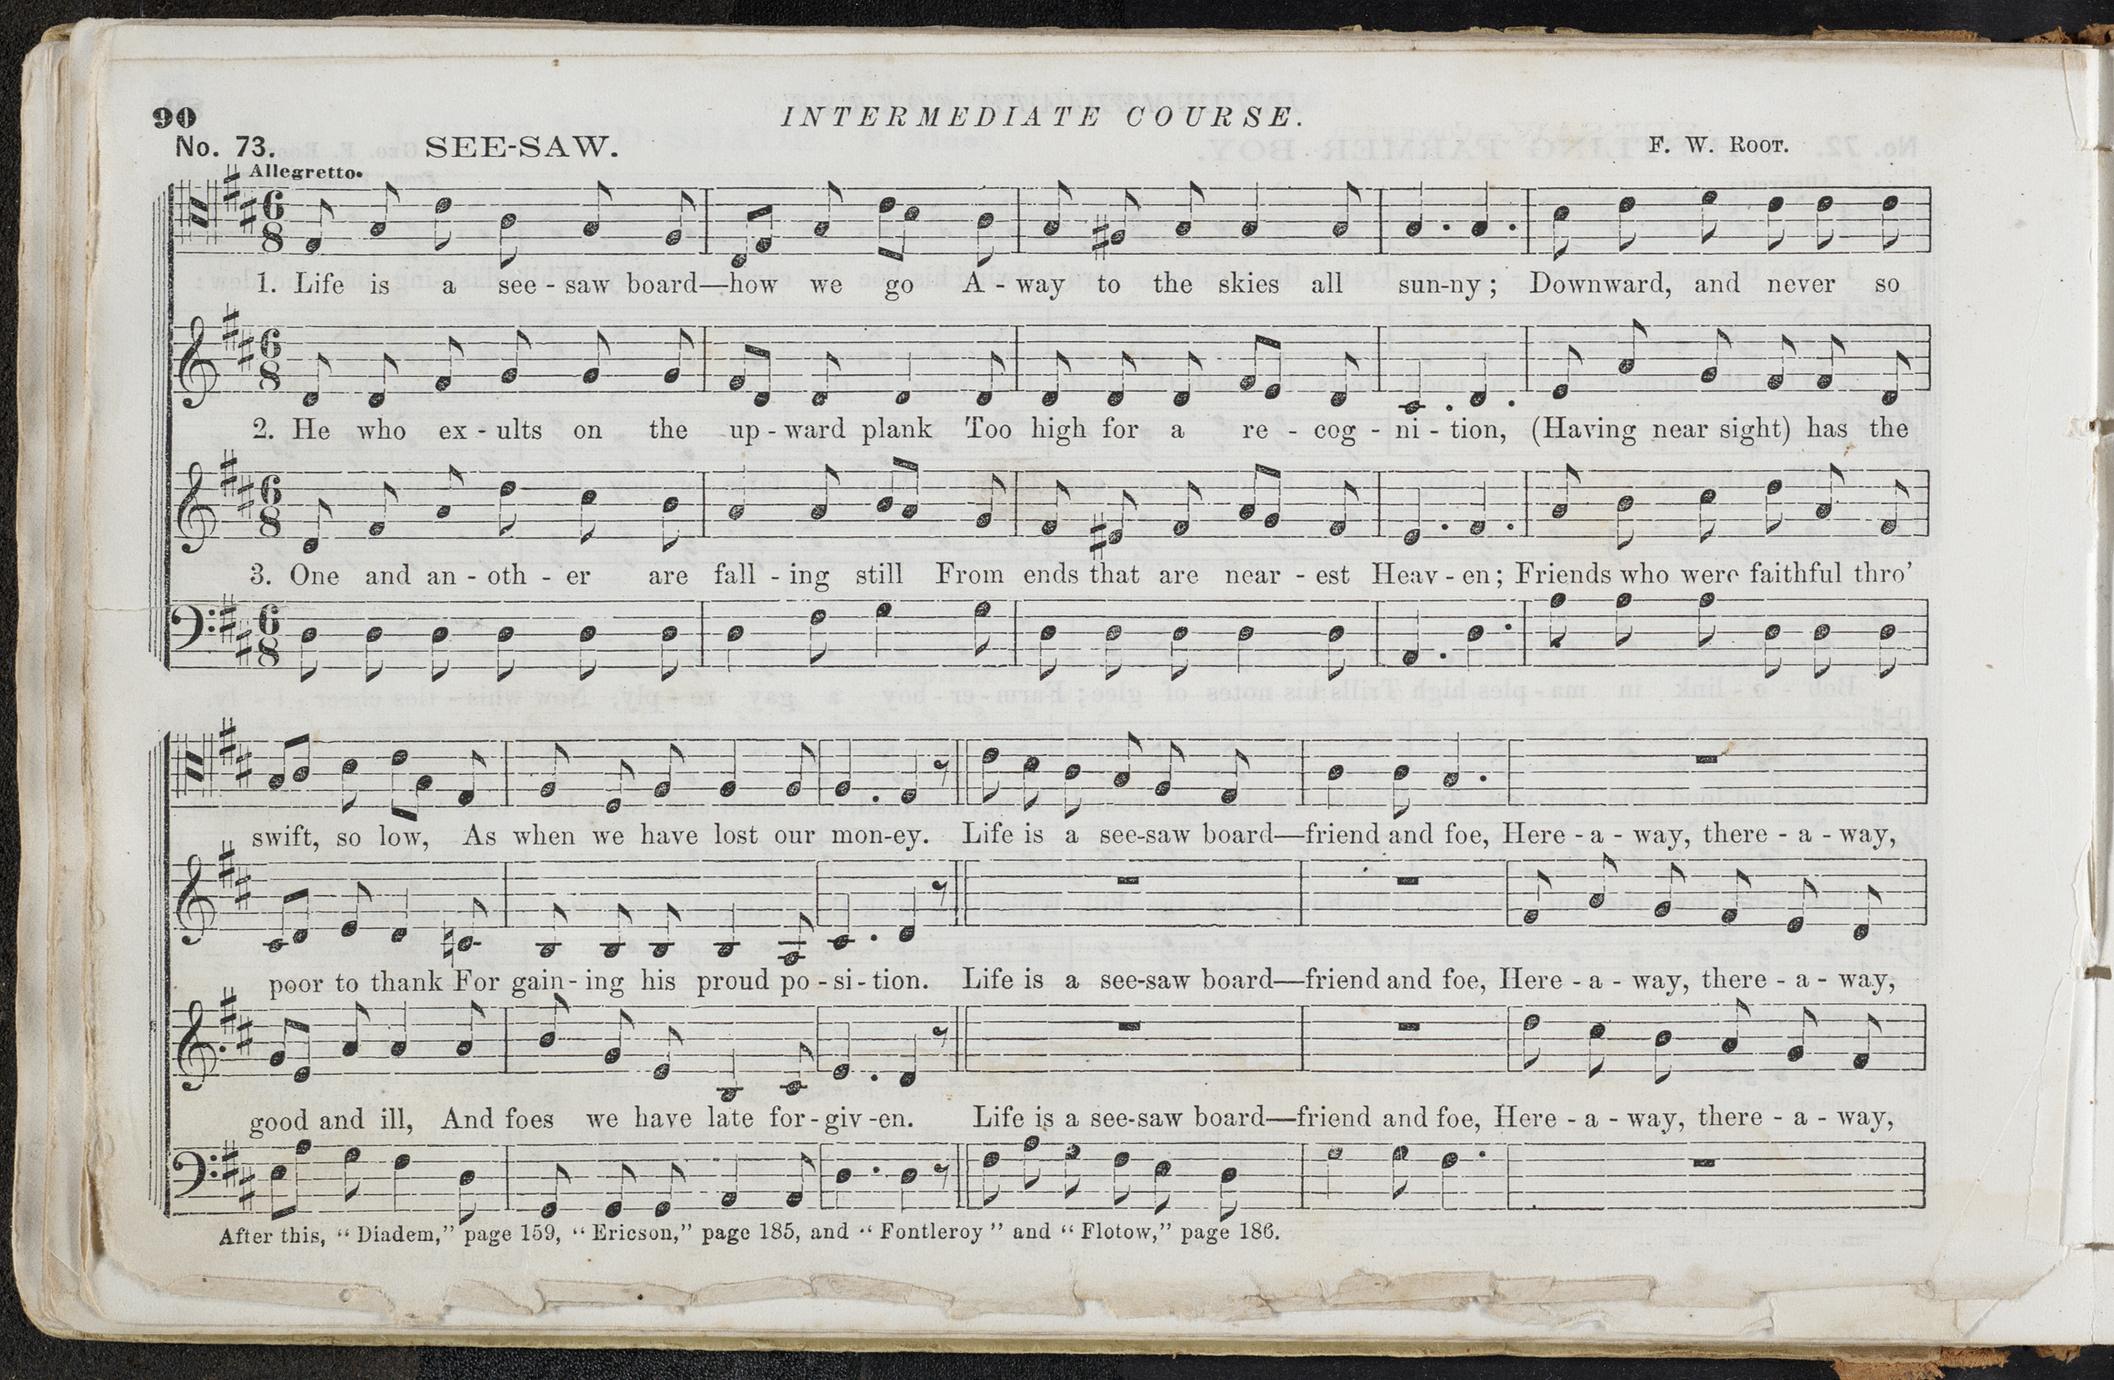 90
INTERMEDIATE COURSE.
No. 73. SEE-SAW. F. W. Root.
Allegretto.
1. Life is a see - saw board—how we go A - way to the skies all sun-ny ; Downward, and never so
2. He who ex - ults on the up - ward plank Too high for a re - cog - ni - tion, (Having near sight) has the
3. One and an - oth - er are fall - ing still From ends that are near - est Heav - en ; Friends who were faithful thro'
swift, so low, As when we have lost our mon-ey. Life is a see-saw board—friend and foe, Here - a - way, there - a - way,
poor to thank For gain - ing his proud po - si - tion. Life is a see-saw board—friend and foe, Here - a - way, there - a - way,
good and ill, And foes we have late for - giv -en. Life is a see-saw board—friend and foe, Here - a - way, there - a - way,
After this, "Diadem," page 159, "Ericson," page 185, and "Fontleroy" and "Flotow," page 186.